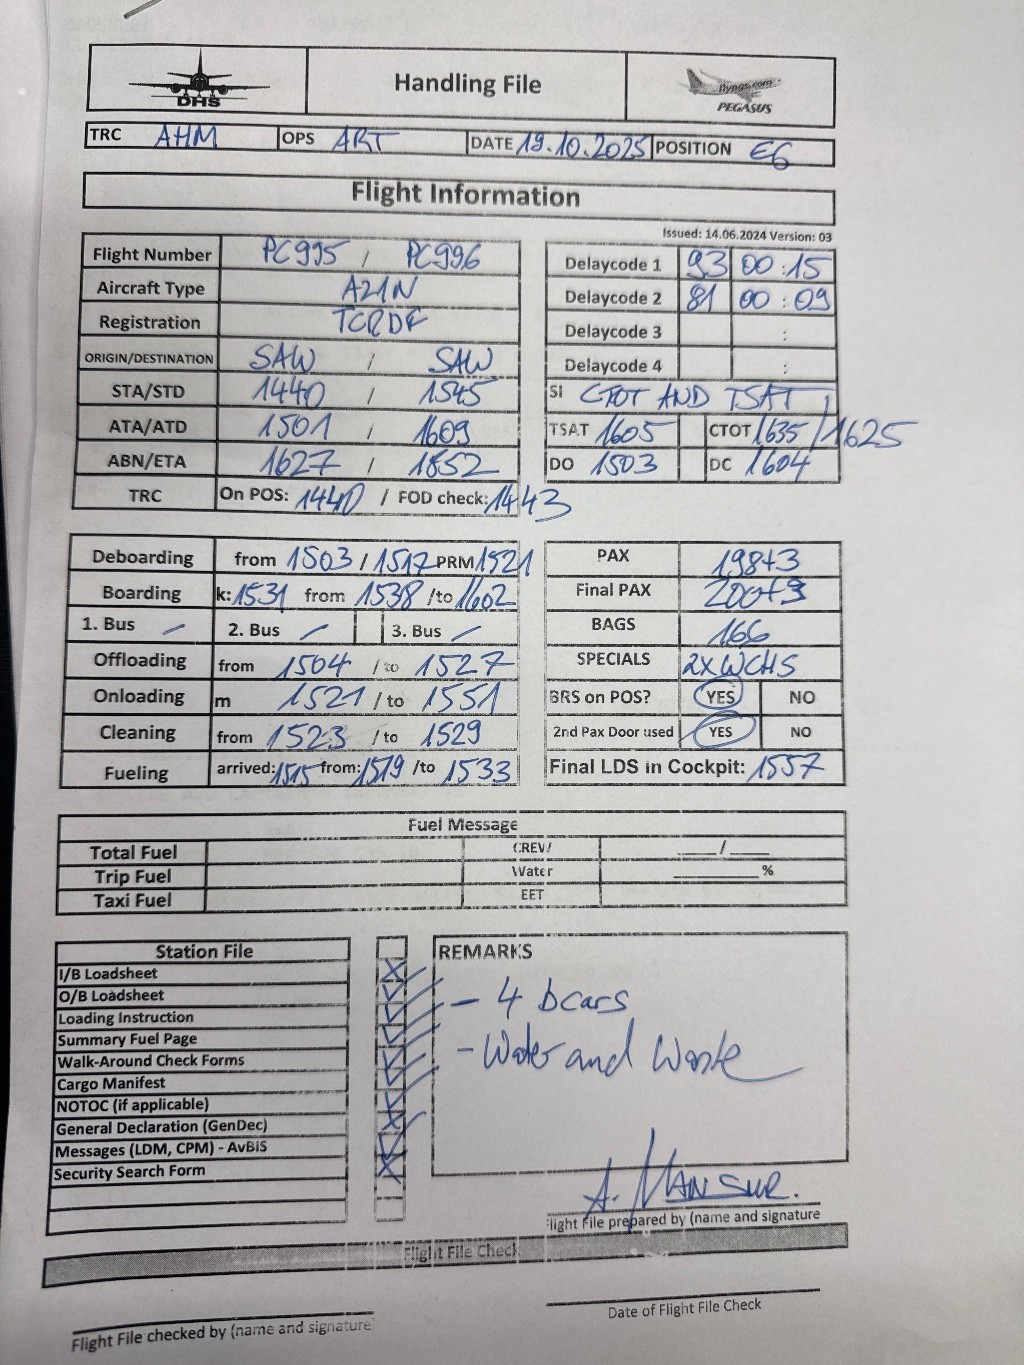 DHS
Handling File
flypgs.com
PEGASUS
TRC AHM OPS ART DATE 19.10.2025 POSITION E6
Flight Information
Issued: 14.06.2024 Version: 03
Flight Number PC995 / PC996
Aircraft Type A21N
Registration TCRDF
ORIGIN/DESTINATION SAW / SAW
STA/STD 1440 / 1545
ATA/ATD 1501 / 1609
ABN/ETA 1627 / 1852
TRC On POS: 1440 / FOD check: 1443
Delaycode 1 93 00:15
Delaycode 2 81 00:09
Delaycode 3 :
Delaycode 4 :
SI CTOT AND TSAT
TSAT 1605 CTOT 1635/1625
DO 1503 DC 1604
Deboarding from 1503 / 1517 PRM 1521
Boarding k: 1531 from 1538 /to 1602
1. Bus – 2. Bus – 3. Bus –
Offloading from 1504 / to 1527
Onloading m 1521 / to 1551
Cleaning from 1523 / to 1529
Fueling arrived: 1515 from: 1519 /to 1533
PAX 198+3
Final PAX 200+3
BAGS 166
SPECIALS 2XWCHS
BRS on POS? YES NO
2nd Pax Door used YES NO
Final LDS in Cockpit: 1557
Fuel Message
Total Fuel CREW ____/____
Trip Fuel Water ________ %
Taxi Fuel EET
Station File
I/B Loadsheet
O/B Loadsheet
Loading Instruction
Summary Fuel Page
Walk-Around Check Forms
Cargo Manifest
NOTOC (if applicable)
General Declaration (GenDec)
Messages (LDM, CPM) - AvBIS
Security Search Form
REMARKS
– 4 bcars
– Water and Waste
A. MANSUR.
light File prepared by (name and signature
Flight File Check
Flight File checked by (name and signature
Date of Flight File Check